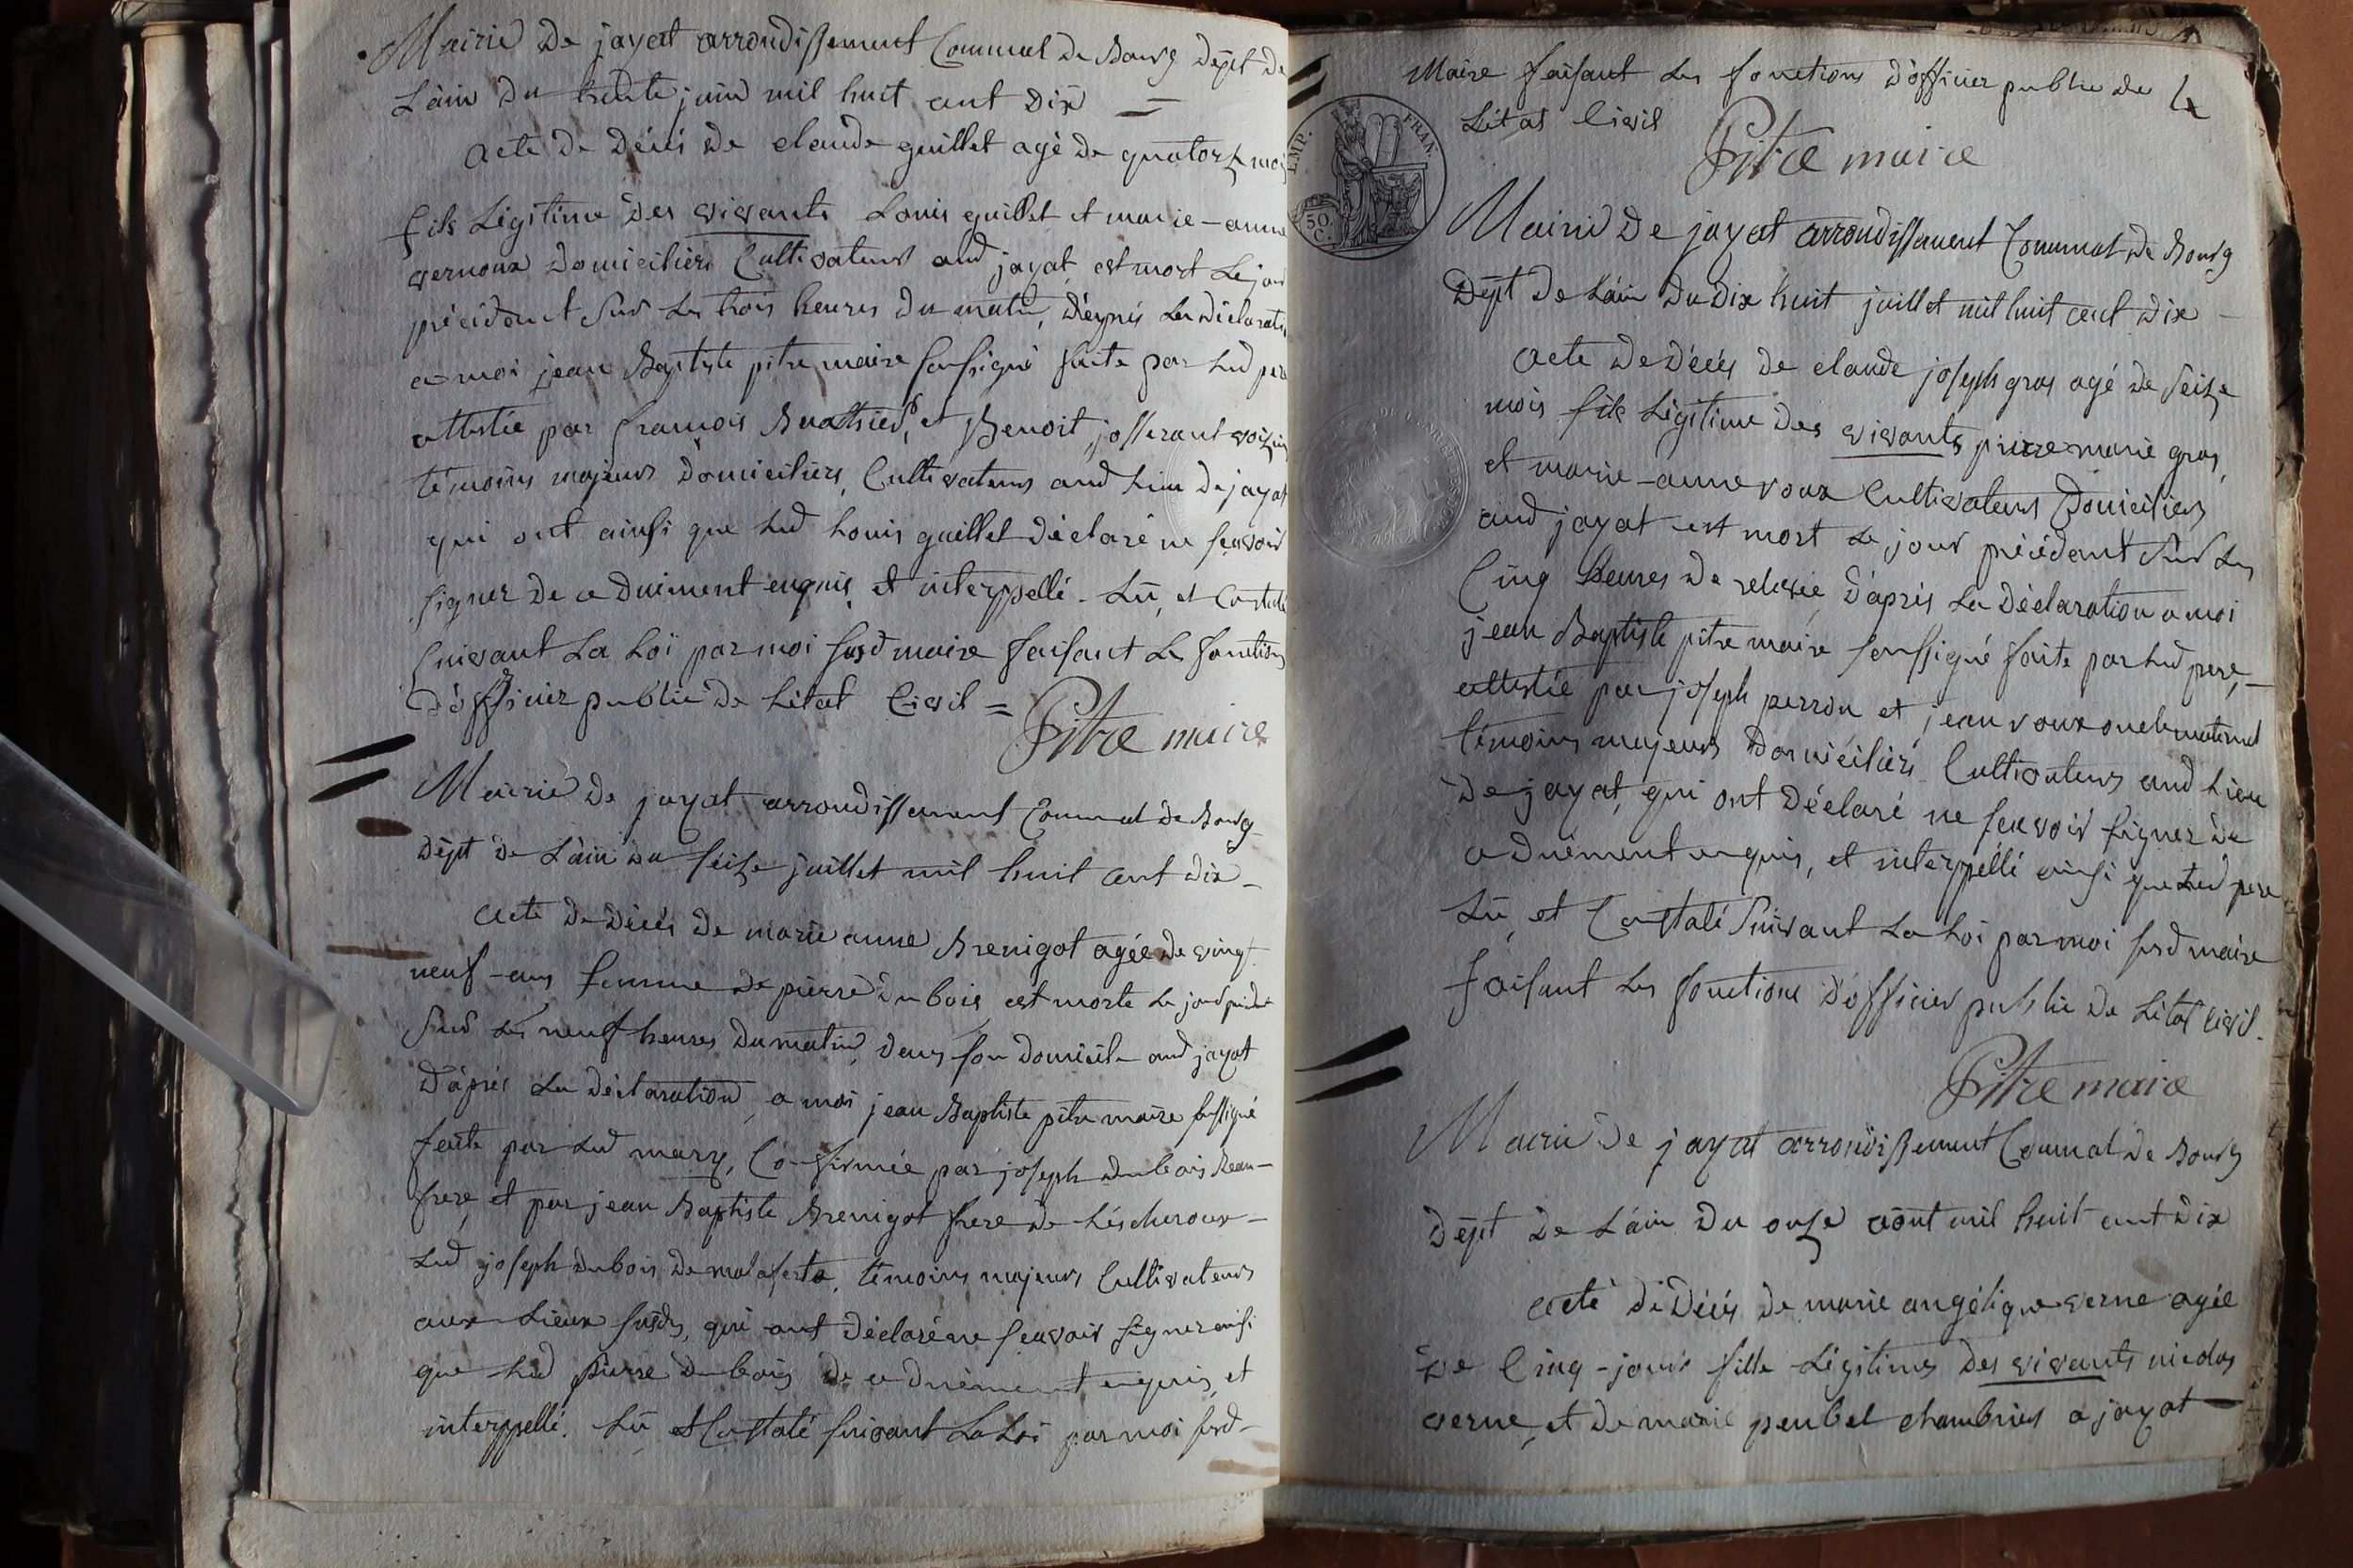 Mairie de jayat arrondissement Communal de Bourg dépt de
L'ain du trente juin mil huit cent dix =
acte de Décés de claude guillet agé de quatorze mois
fils Légitime des vivants Louis guillet et marie-anne
vernoux Domiciliés Cultivateurs aud jayat, est mort Le jour
précédent sur Les trois heures du matin, d'après La déclaration
a moi jean Baptiste pitre maire soussigné faite par Led pere
attestée par françois Buathier, et Benoit josserant voisins
témoins majeurs domiciliés, Cultivateurs aud Lieu de jayat
qui ont ainsi que Led Louis guillet déclaré ne sçavoir
signer de ce duement enquis, et interppellé. Lu, et Constaté
suivant La Loi par moi susd maire faisant Les fonctions
d'officier public de L'état Civil =
Pitre maire
Mairie de jayat arrondissement Communal de Bourg
dépt de L'ain du seize juillet mil huit cent dix -
acte de Décés de marie anne Brenigot agée de vingt
neuf-ans femme de pierre dubois est morte Le jour précédent
sur Les neuf heures du matin, dans son domicile aud jayat
d'après La déclaration a moi jean Baptiste pitre maire soussigné
faite par Led mary, Confirmée par joseph dubois Beau-
frere, et par jean Baptiste Brenigot frere de Léscheroux-
Led joseph dubois de malaferta, témoins majeurs Cultivateurs
aux Lieux susds, qui ont déclaré ne sçavoir signer ainsi
que Led pierre dubois de ce duement enquis, et
interppellé. Lu et Constaté suivant La Loi par moi susd-
4
Maire faisant Les fonctions d'officier public de
L'état Civil
Pitre maire
EMP. FRAN.
50 C.
Mairie De jayat arrondissement Communal de Bourg
Dépt De L'ain Du Dix huit juillet mil huit cent dix -
acte de Décés de claude joseph gros agé de seize
mois fils Légitime des vivants pierre marie gros,
et marie-anne roux Cultivateurs Domiciliés
aud jayat est mort Le jour précédent sur Les
Cinq heures de relevée, d'après La Déclaration a moi
jean Baptiste pitre maire soussigné faite par Led pere,-
attestée par joseph perron et jean roux oncle maternel
témoins majeurs Domiciliés Cultivateurs aud Lieu
De jayat, qui ont Déclaré ne sçavoir signer de
ce duement enquis, et interppéllé ainsi que Led pere
Lu, et Constaté suivant La Loi par moi susd maire
faisant Les fonctions d'officier public de L'état Civil.
Pitre maire
Mairie De jayat arrondissement Communal de Bourg
dépt De L'ain Du onze aout mil huit cent dix
acte de Décés de marie angélique verne agée
de Cinq-jours fille Légitime des vivants nicolas
verne, et de marie peubel chambriés a jayat -